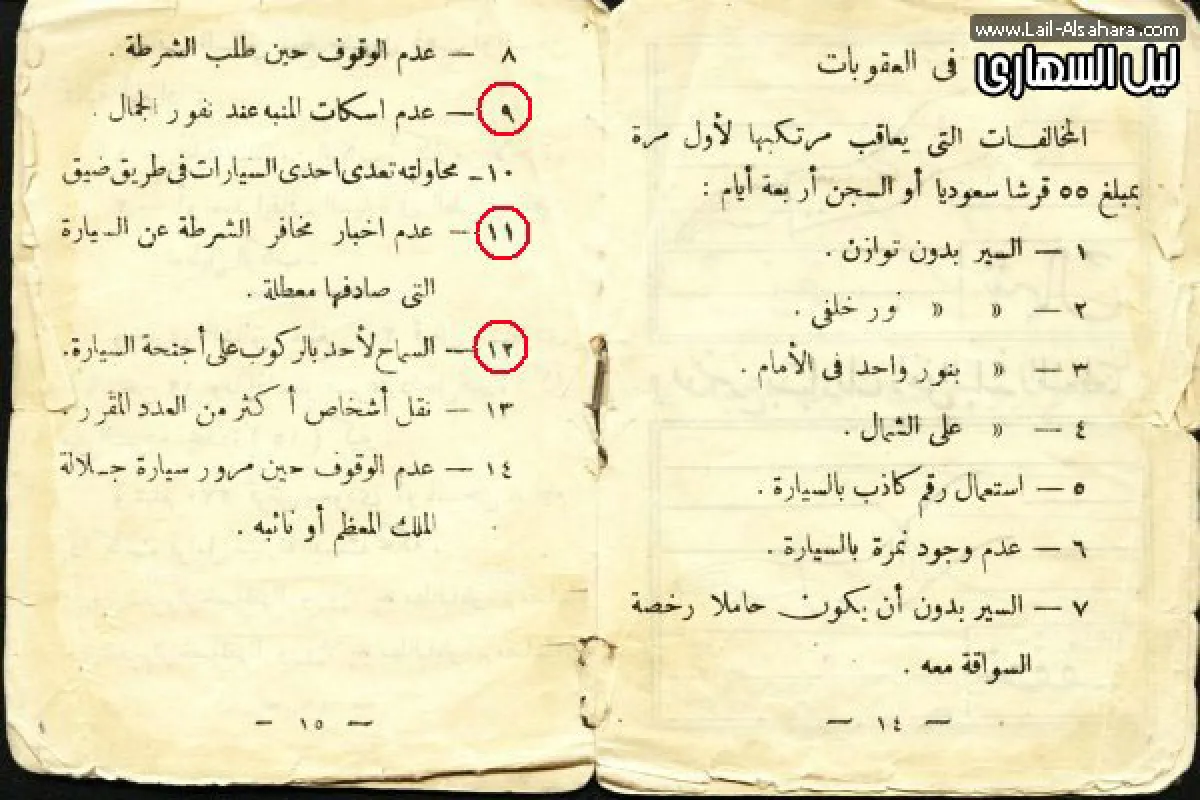 www.Lail-Alsahara.com
ليل السهارى
فى العقوبات
المخالفات التى يعاقب مرتكبها لأول مرة
بمبلغ ٥٥ قرشا سعوديا أو السجن أربعة أيام :
١ — السير بدون توازن .
٢ — « « نور خلفى .
٣ — « بنور واحد فى الأمام .
٤ — « على الشمال .
٥ — استعمال رقم كاذب بالسيارة .
٦ — عدم وجود نمرة بالسيارة .
٧ — السير بدون أن يكون حاملا رخصة
السواقة معه .
— ١٤ —
٨ — عدم الوقوف حين طلب الشرطة .
٩ — عدم اسكات المنبه عند نفور الجمال .
١٠ — محاولته تعدى احدى السيارات فى طريق ضيق
١١ — عدم اخبار مخافر الشرطة عن السيارة
التى صادفها معطلة .
١٢ — السماح لأحد بالركوب على أجنحة السيارة .
١٣ — نقل أشخاص أكثر من العدد المقرر .
١٤ — عدم الوقوف حين مرور سيارة جلالة
الملك المعظم أو نائبه .
— ١٥ —